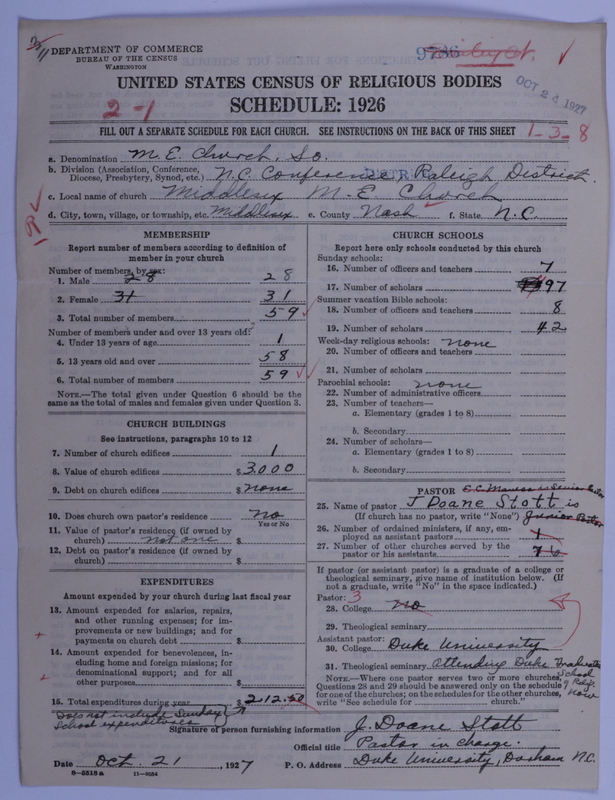 DEPARTMENT OF COMMERCE
BUREAU OF THE CENSUS
WASHINGTON
9786
OCT 24 1927
UNITED STATES CENSUS OF RELIGIOUS BODIES
2-1
SCHEDULE: 1926
FILL OUT A SEPARATE SCHEDULE FOR EACH CHURCH. SEE INSTRUCTIONS ON THE BACK OF THIS SHEET
1-3-8
a. Denomination M.E. Church, So.
b. Division (Association, Conference, Diocese, Presbytery, Synod, etc.) N.C. Conference, Raleigh District.
c. Local name of church Middlesex M-E Church
d. City, town, village, or township, etc. Middlesex e. County Nash f. State N.C.
MEMBERSHIP
Report number of members according to definition of member in your church
Number of members, by sex:
1. Male 28 28
2. Female 31 31
3. Total number of members 59
Number of members under and over 13 years old:
4. Under 13 years of age 1
5. 13 years old and over 58
6. Total number of members 59
NOTE.—The total given under Question 6 should be the same as the total of males and females given under Question 3.
CHURCH BUILDINGS
See instructions, paragraphs 10 to 12
7. Number of church edifices 1
8. Value of church edifices $3000
9. Debt on church edifices $none
10. Does church own pastor's residence no
Yes or No
11. Value of pastor's residence (if owned by church) not one $
12. Debt on pastor's residence (if owned by church) $
EXPENDITURES
Amount expended by your church during last fiscal year
13. Amount expended for salaries, repairs, and other running expenses; for improvements or new buildings; and for payments on church debt $
14. Amount expended for benevolences, including home and foreign missions; for denominational support; and for all other purposes $
15. Total expenditures during year $212.50
Does not include Sunday
School expenditures
CHURCH SCHOOLS
Report here only schools conducted by this church
Sunday schools:
16. Number of officers and teachers 7
17. Number of scholars 97
Summer vacation Bible schools:
18. Number of officers and teachers 8
19. Number of scholars 42
Week-day religious schools: none
20. Number of officers and teachers
21. Number of scholars
Parochial schools: none
22. Number of administrative officers
23. Number of teachers—
a. Elementary (grades 1 to 8)
b. Secondary
24. Number of scholars—
a. Elementary (grades 1 to 8)
b. Secondary
PASTOR
25. Name of pastor J Doane Stott is
(If church has no pastor, write "None") Junior Pastor
26. Number of ordained ministers, if any, employed as assistant pastors 1
27. Number of other churches served by the pastor or his assistants
If pastor (or assistant pastor) is a graduate of a college or theological seminary, give name of institution below. (If not a graduate, write "No" in the space indicated.)
Pastor: 3
28. College no
29. Theological seminary
Assistant pastor:
30. College Duke University
31. Theological seminary attending Duke Graduate
School of Relig. now
NOTE.—Where one pastor serves two or more churches, Questions 28 and 29 should be answered only on the schedule for one of the churches; on the schedules for the other churches, write "See schedule for church."
Signature of person furnishing information J. Doane Stott
Official title Pastor in charge.
Date Oct. 21, 1927 P. O. Address Duke University, Durham N.C.
8-5518 a 11-9054